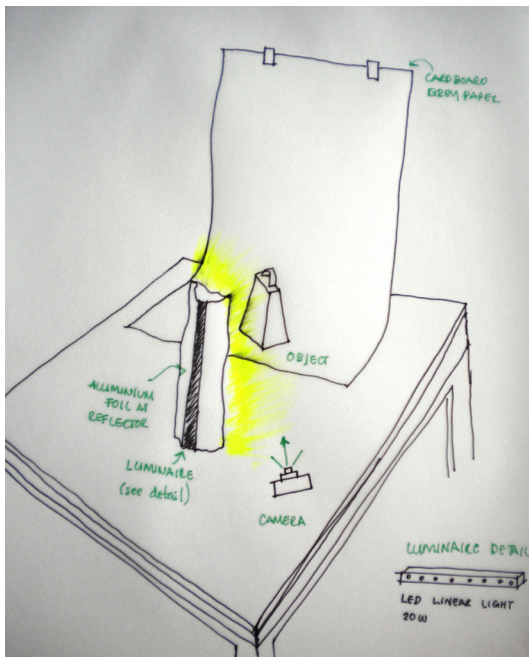 CARDBOARD
GREY PAPER
OBJECT
ALUMINIUM
FOIL AS
REFLECTOR
LUMINAIRE
(see detail)
CAMERA
LUMINAIRE DETAIL
LED LINEAR LIGHT
20W